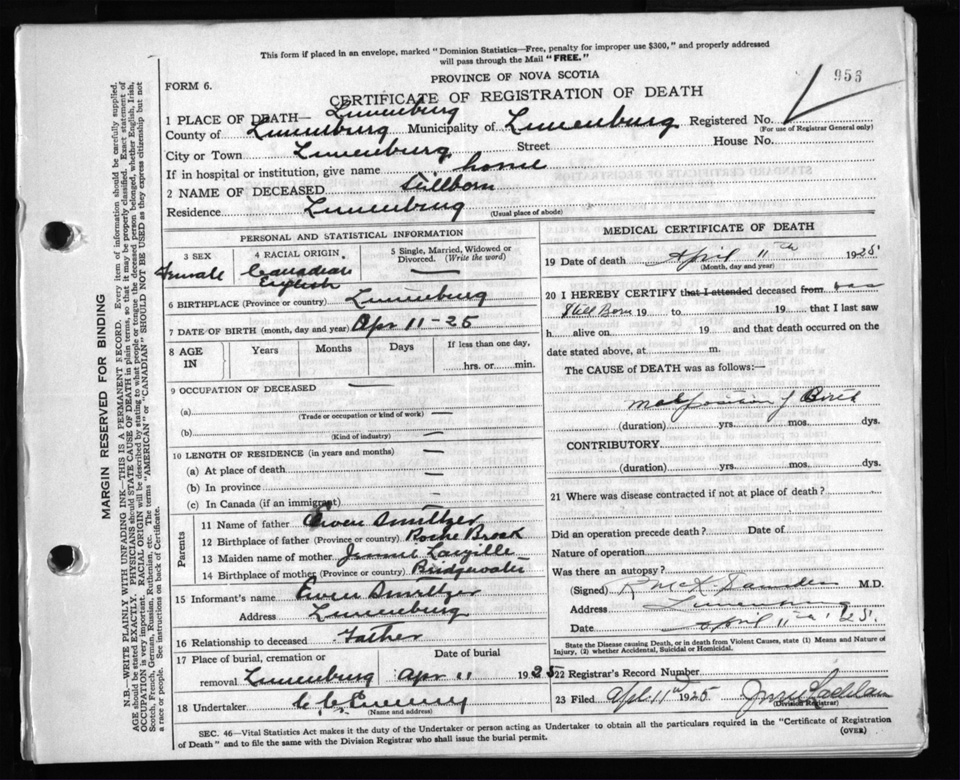 This form if placed in an envelope, marked "Dominion Statistics—Free, penalty for improper use $300," and properly addressed
will pass through the Mail "FREE."
PROVINCE OF NOVA SCOTIA
FORM 6.
CERTIFICATE OF REGISTRATION OF DEATH
953
1 PLACE OF DEATH— Lunenburg
County of Lunenburg Municipality of Lunenburg Registered No.
(For use of Registrar General only)
City or Town Lunenburg Street House No.
If in hospital or institution, give name home
2 NAME OF DECEASED Stillborn
Residence Lunenburg (Usual place of abode)
MARGIN RESERVED FOR BINDING
N.B.—WRITE PLAINLY WITH UNFADING INK—THIS IS A PERMANENT RECORD. Every item of information should be carefully supplied.
AGE should be stated EXACTLY. PHYSICIANS should STATE CAUSE OF DEATH in plain terms, so that it may be properly classified. Exact statement of
OCCUPATION is very important. RACIAL ORIGIN will be described by stating to what people or tongue the deceased person belonged, whether English, Irish,
Scotch, French, German, Russian, Ruthenian, etc. The terms "AMERICAN" or "CANADIAN" SHOULD NOT BE USED as they express citizenship but not
a race or people. See instructions on back of Certificate.
PERSONAL AND STATISTICAL INFORMATION
3 SEX
4 RACIAL ORIGIN.
5 Single, Married, Widowed or
Divorced. (Write the word)
Canadian
English
6 BIRTHPLACE (Province or country) Lunenburg
7 DATE OF BIRTH (month, day and year) Apr 11-25
8 AGE
IN
Years
Months
Days
If less than one day,
hrs. or min.
9 OCCUPATION OF DECEASED
(a)
(Trade or occupation or kind of work)
(b)
(Kind of industry)
10 LENGTH OF RESIDENCE (in years and months)
(a) At place of death
(b) In province
(c) In Canada (if an immigrant)
Parents
11 Name of father Owen Smeltzer
12 Birthplace of father (Province or country)
13 Maiden name of mother Jennie Langille
14 Birthplace of mother (Province or country) Bridgewater
15 Informant's name Owen Smeltzer
Address Lunenburg
16 Relationship to deceased Father
17 Place of burial, cremation or Date of burial
removal Lunenburg Apr 11 1925
18 Undertaker
(Name and address)
MEDICAL CERTIFICATE OF DEATH
19 Date of death April 11th 1925
(Month, day and year)
20 I HEREBY CERTIFY that I attended deceased from was
Still Born 19 to 19 that I last saw
h alive on 19 and that death occurred on the
date stated above, at m.
The CAUSE OF DEATH was as follows:—
(duration) yrs. mos. dys.
CONTRIBUTORY
(duration) yrs. mos. dys.
21 Where was disease contracted if not at place of death?
Did an operation precede death? Date of
Nature of operation
Was there an autopsy?
(Signed) M.D.
Address Lunenburg
Date April 11th 1925
State the Disease causing Death, or in death from Violent Causes, state (1) Means and Nature of
Injury, (2) whether Accidental, Suicidal or Homicidal.
22 Registrar's Record Number
23 Filed Apl 11th 1925
(Division Registrar)
SEC. 46—Vital Statistics Act makes it the duty of the Undertaker or person acting as Undertaker to obtain all the particulars required in the "Certificate of Registration
of Death" and to file the same with the Division Registrar who shall issue the burial permit.
(OVER)